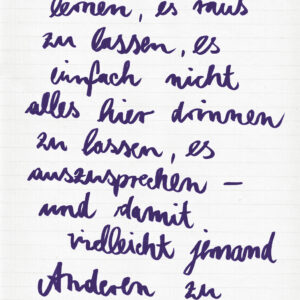 lernen, es raus
zu lassen, es
einfach nicht
alles hier drinnen
zu lassen, es
auszusprechen –
und damit
vielleicht jemand
Anderen zu